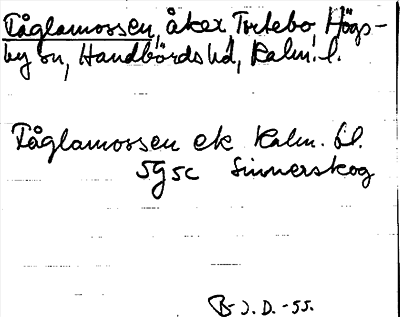 Fåglamossen, åker, Tvtebo, Högs-
by sn, Handbörds hd, Kalm. l.
Fåglamossen ek Kalm. bl.
5g5c Sinnerskog
B-J. D. -55.